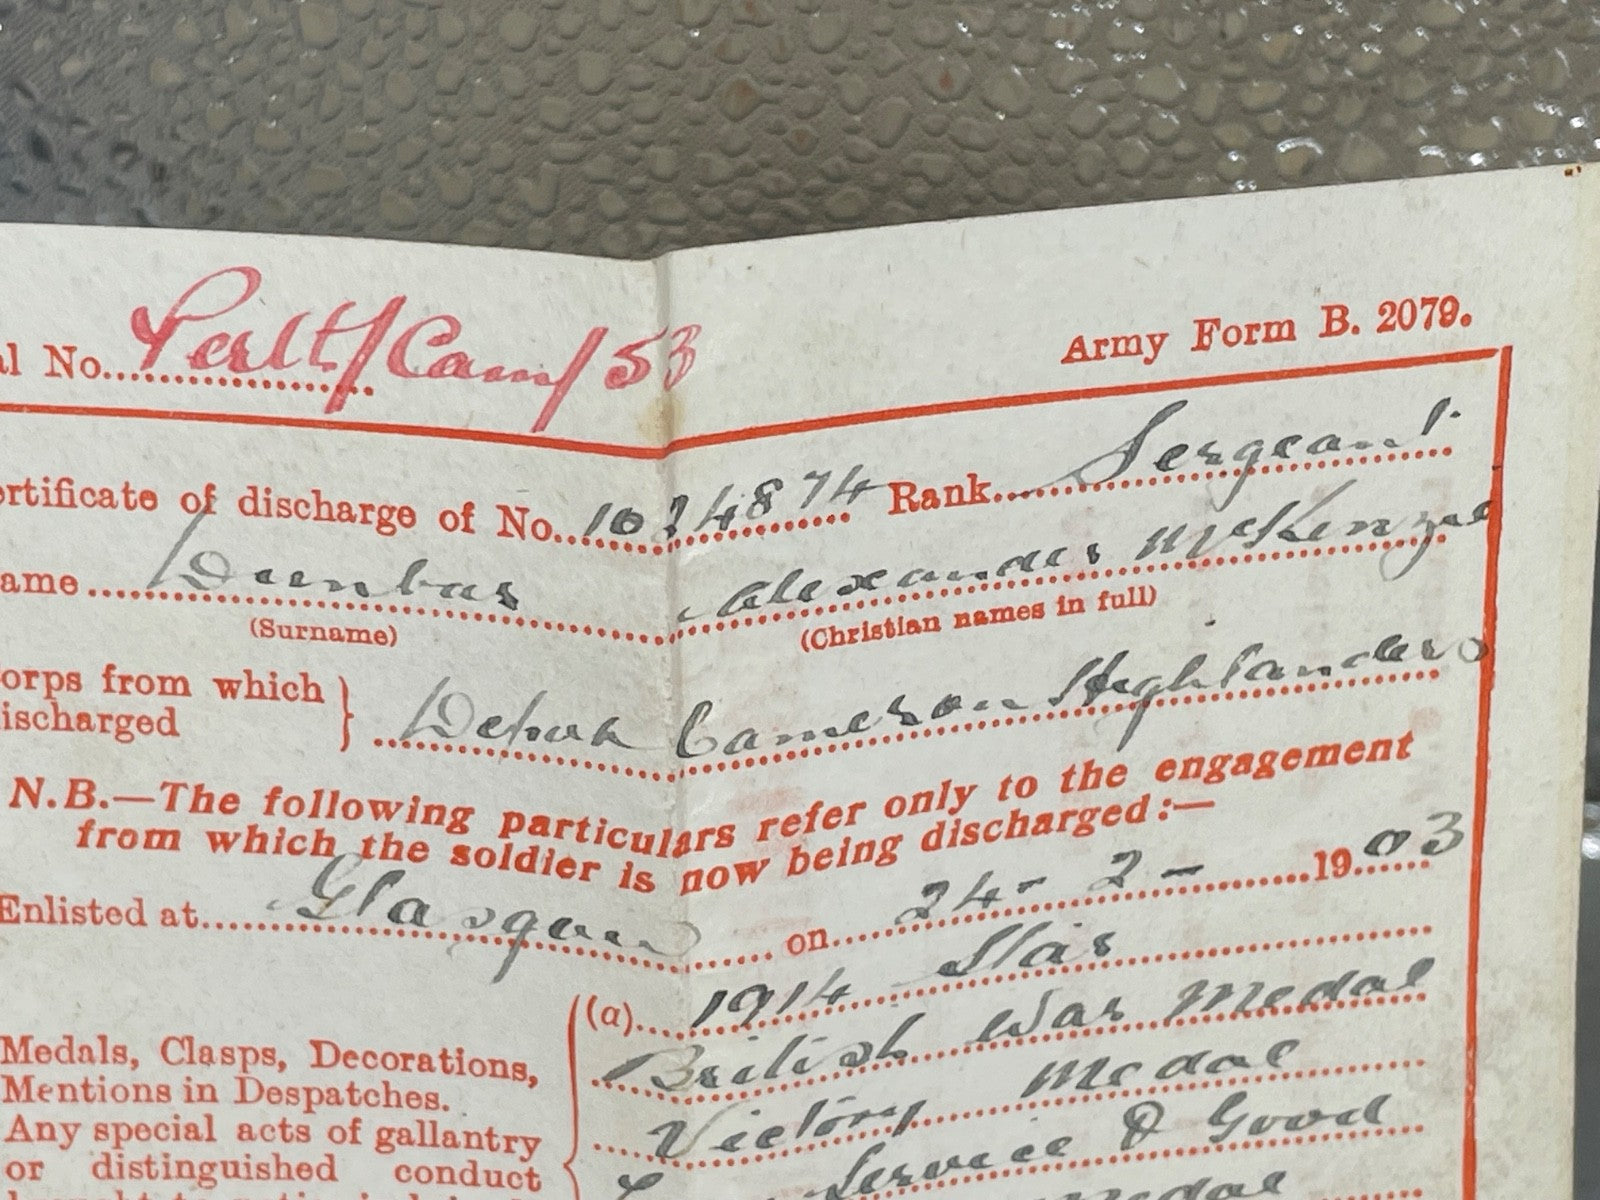 al No. Perth/Cam/53
Army Form B. 2079.
ertificate of discharge of No. 1024874 Rank Sergeant
ame Dunbar Alexander McKenzie
(Surname) (Christian names in full)
orps from which
ischarged } Depot Cameron Highlanders
N.B.—The following particulars refer only to the engagement
from which the soldier is now being discharged:—
Enlisted at Glasgow on 24-2-1903
(a) 1914 Star
British War Medal
Medals, Clasps, Decorations,
Mentions in Despatches.
Victory Medal
Any special acts of gallantry
Service & Good
or distinguished conduct
Medal